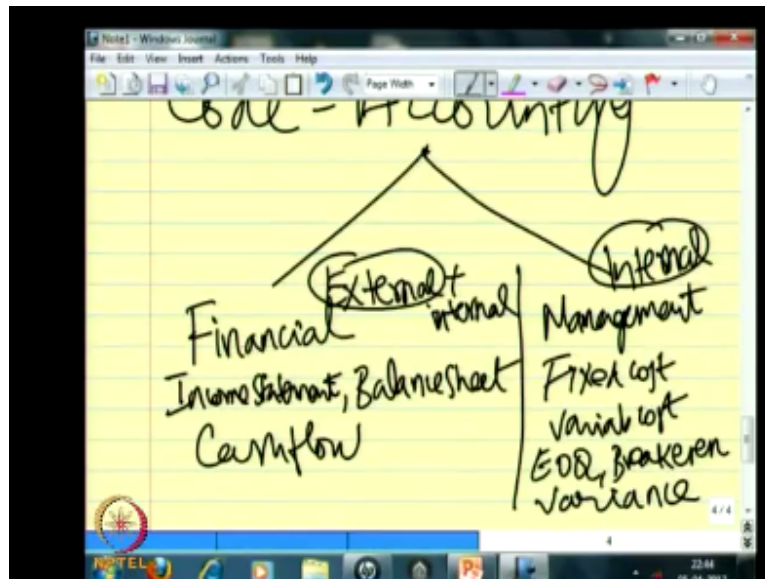 Note1 - Windows Journal
File Edit View Insert Actions Tools Help
Page Width
Code - Accounting
External + internal
Financial
Income Statement, Balance Sheet
Cashflow
Internal
Management
Fixed cost
Variab cost
EOQ, Breakeven
Variance
4/4
4
NPTEL
22:44